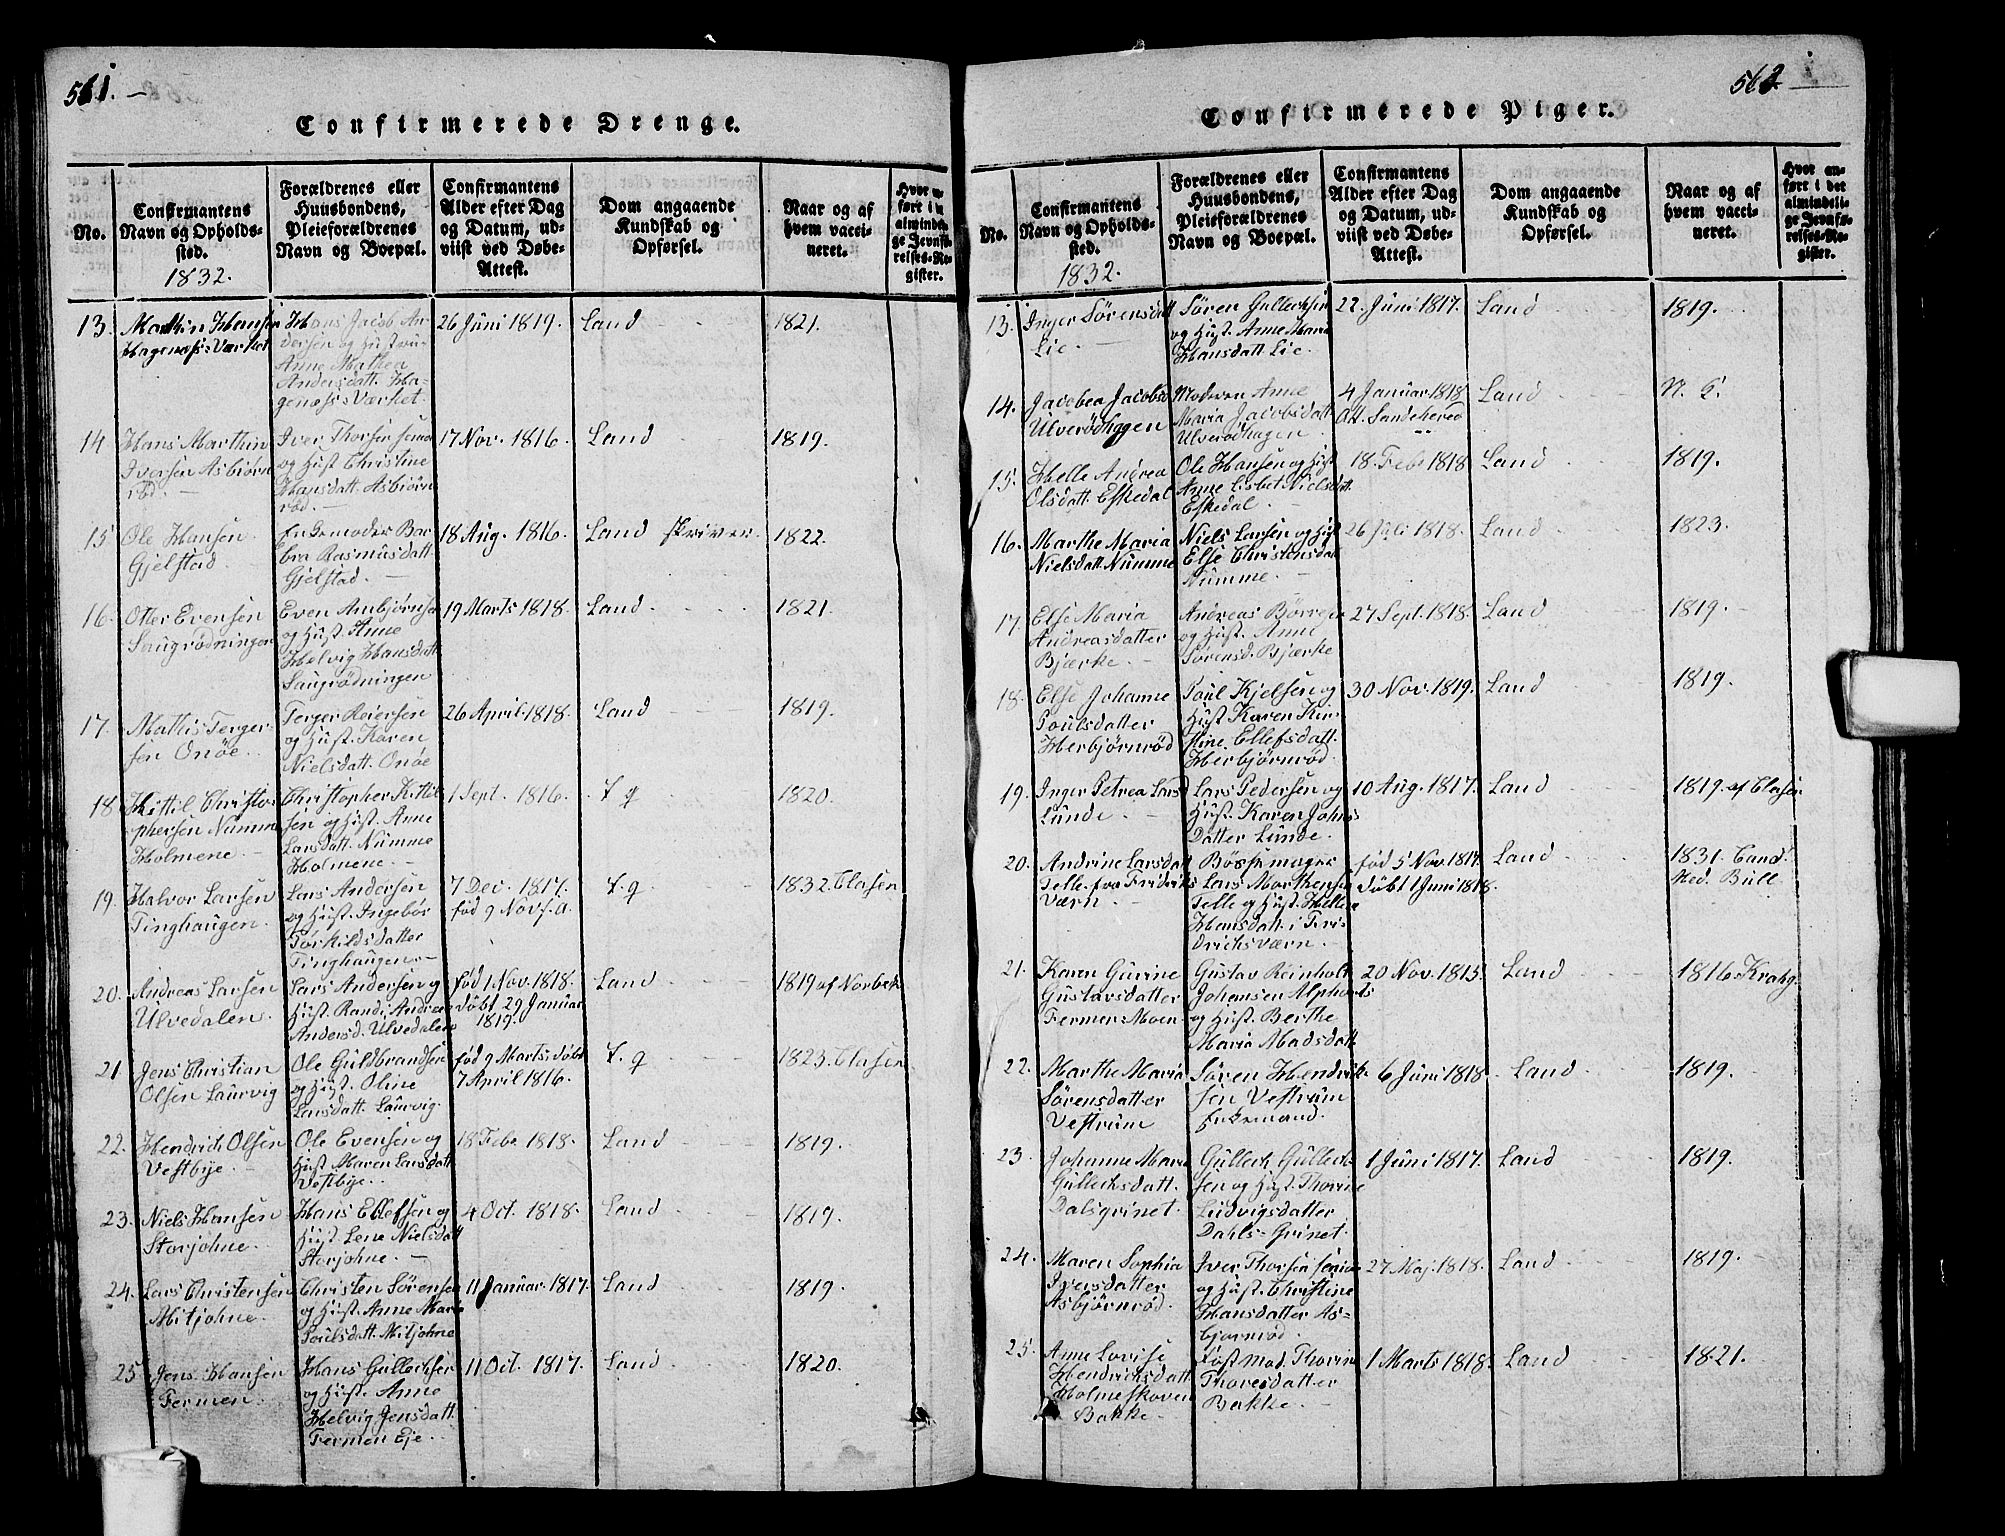 561.
Confirmerede Drenge.
No.
Confirmantens
Navn og Opholds-
sted.
1832.
Forældrenes eller
Huusbondens,
Pleieforældrenes
Navn og Boepæl.
Confirmantens
Alder efter Dag
og Datum, ud-
viist ved Døbe-
Attest.
Dom angaaende
Kundskab og
Opførsel.
Naar og af
hvem vacci-
neret.
13.
Mathin Hansen
Hagenæss Værket
Hans Jacob An-
dersen og Hustru
Anne Mathea
Andersdatt. Ha-
genæss Værket.
26 Juni 1819.
Land
1821.
14
Hans Marthin
Iversen Asbiørn
rød.
Iver Thorsen
og Hust Christine
Hansdatt. Asbiørn
rød.
17 Nov. 1816.
Land
1819.
15
Ole Hansen
Gjelstad.
Enkemoder Bar-
bra Rasmusdatt
Gjelstad.
18 Aug. 1816.
Land skriver.
1822.
16.
Otter Evensen
Saugrødningen
Even Ambjørnsen
og Hust Anne
Helvig Hansdatt
Saugrødningen
19 Marts 1818.
Land.
1821.
17.
Mathis Terger
sen Onøe.
Terger Reiersen
og Hust. Karen
Nielsdatt. Onøe
26 April 1818.
Land
1819.
18
Kittil Christo
phersen Numme
Holmene.
Christopher Kittil
sen og Hust. Anne
Larsdatt. Numme
Holmene.
1 Sept. 1816.
T. g
1820.
19.
Halvor Larsen
Tinghaugen.
Lars Andersen
og Hust. Ingebør
Torkildsdatter
Tinghaugen.
7 Dec. 1817.
fød 9 Nov. s. a.
T. g
1832. Clasen
20.
Andreas Larsen
Ulvedalen.
Lars Andersen og
Hust. Randi Andrea
Andersd. Ulvedalen
fød 1 Nov. 1818.
døbt 29 Januar
1819.
Land
1819 af Norbek
21
Jens Christian
Olsen Laurvig
Ole Guldbrandsen
og Hust. Oline
Larsdatt. Laurvig.
fød 9 Marts, døbt
7 April 1816.
T. g
1823. Clasen
22.
Hendrich Olsen
Vestbye.
Ole Evensen og
Hust Maren Larsdatt
Vestbye.
18 Febr 1818.
Land
1819.
23.
Niels Hansen
Storjohne.
Hans Ellefsen og
Hust Lene Nielsdatt
Storjohne.
4 Oct. 1818.
Land
1819.
24.
Lars Christensen
Mitjohne.
Christen Sørensen
og Hust. Anne Maria
Poulsdatt. Mitjohne
11 Januar. 1817.
Land
1819.
25
Jens Hansen
Fermen.
Hans Gullechsen
og Hust. Anne
Helvig Jensdatt.
Fermen Eje.
11 Oct. 1817.
Land
1820.
562
Confirmerede Piger.
No.
Confirmantens
Navn og Opholds-
sted.
1832.
Forældrenes eller
Huusbondens,
Pleieforældrenes
Navn og Boepæl.
Confirmantens
Alder efter Dag
og Datum, ud-
viist ved Døbe-
Attest.
Dom angaaende
Kundskab og
Opførsel.
Naar og af
hvem vacci-
neret.
Hvor an-
ført i det
almindeli-
ge Jevnfø-
relses-Re-
gister.
13.
Inger Sørensdatt
Lie.
Søren Gullechsen
og Hust. Anne Maria
Hansdatt. Lie.
22. Juni 1817.
Land
1819.
14.
Jacobea Jacobsd
Ulverødhagen
Moderen Anne
Maria Jacobsdatt
Ulverødhagen
4 Januar 1818
Att. Sandeherred
Land
15.
Helle Andrea
Olsdatt. Eskedal
Ole Hansen og Hust
Anne Lisbet Nielsdatt.
Eskedal
18. Febr 1818
Land
1819.
16.
Marthe Maria
Nielsdatt. Numme
Niels Larsen og Hust
Else Christensdatt
Numme.
26 Juli 1818.
Land
1823.
17.
Else Maria
Andreasdatter
Bjærke.
Andreas Børresen
og Hust. Anne
Sørensd. Bjærke
27 Sept. 1818.
Land
1819.
18.
Else Johanne
Poulsdatter
Herbjørnrød
Poul Kjelsen og
Hust Karen Kir-
stine Ellefsdatt.
Herbjørnrød.
30 Nov. 1819.
Land
1819.
19.
Inger Petrea Larsd
Lunde.
Lars Pedersen og
Hust. Karen Johns
Datter Lunde.
10 Aug. 1817.
Land
1819. af Clasen
20.
Andrine Larsdatt
Telle fra Fridrichs
Værn.
Bøssemager
Lars Morthensen
Telle og Hust. Hellene
Hansdatt. i Frid-
drichsværn.
fød 5 Nov. 1817.
døbt 1 Juni 1818.
Land
1831. Cand.
Med. Bull
21.
Karen Gurine
Gustavsdatter
Fermen Moen
Gustav Reinholt
Johansen
og Hust. Berthe
Maria Madsdatt
20 Nov. 1815.
Land
1816. Krahg
22.
Marthe Maria
Sørensdatter
Vestrum
Søren Hendrik-
sen Vestrum
Enkemand.
6 Juni 1818.
Land
1819.
23.
Johanne Maria
Gullechsdatt.
Dalsgrinet.
Gullech Gullech-
sen og Hust. Thorine
Ludvigsdatter
Dahls-Grinet.
1 Juni 1817.
Land
1819.
24.
Maren Sophia
Iversdatter
Asbjørnrød.
Iver Thorsen senior
og Hust. Christine
Hansdatter As-
bjørnrød.
27 Maj. 1818.
Land
1819.
25.
Anne Lovise
Hendrichsdatt
Holmeskoven
Bakke.
Fost mod. Thorine
Thoresdatter
Bakke.
1 Marts 1818.
Land
1821.